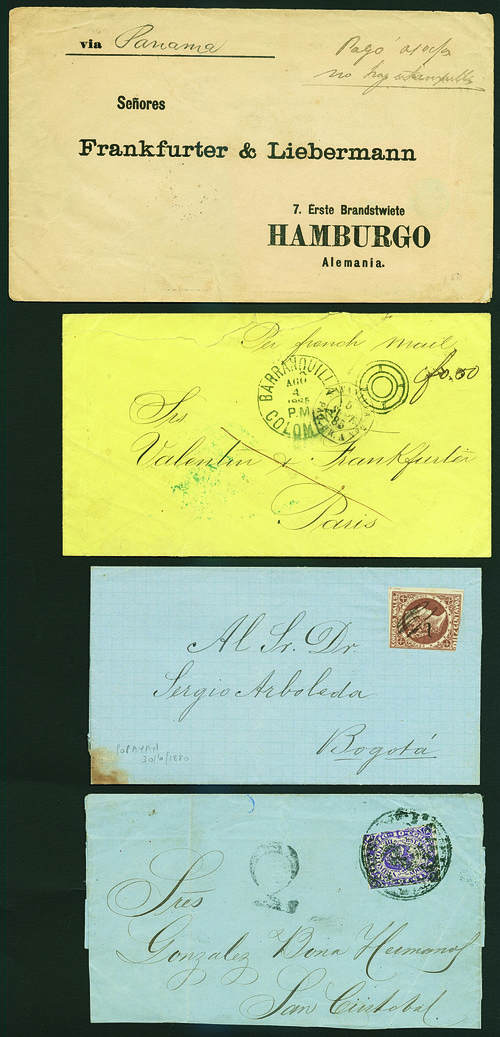 via Panama
Pagó
no hay
Señores
Frankfurter & Liebermann
7. Erste Brandstwiete
HAMBURGO
Alemania.
Per french mail
f0,50
BARRANQUILLA
AGO
4
P.M.
COLOMBIA
Srs
Valentin & Frankfurter
Paris
Al Sr. Dr.
Sergio Arboleda
Bogotá
POPAYAN
30/6/1880
2
Sres
Gonzalez Bona Hermanos
San Cristobal